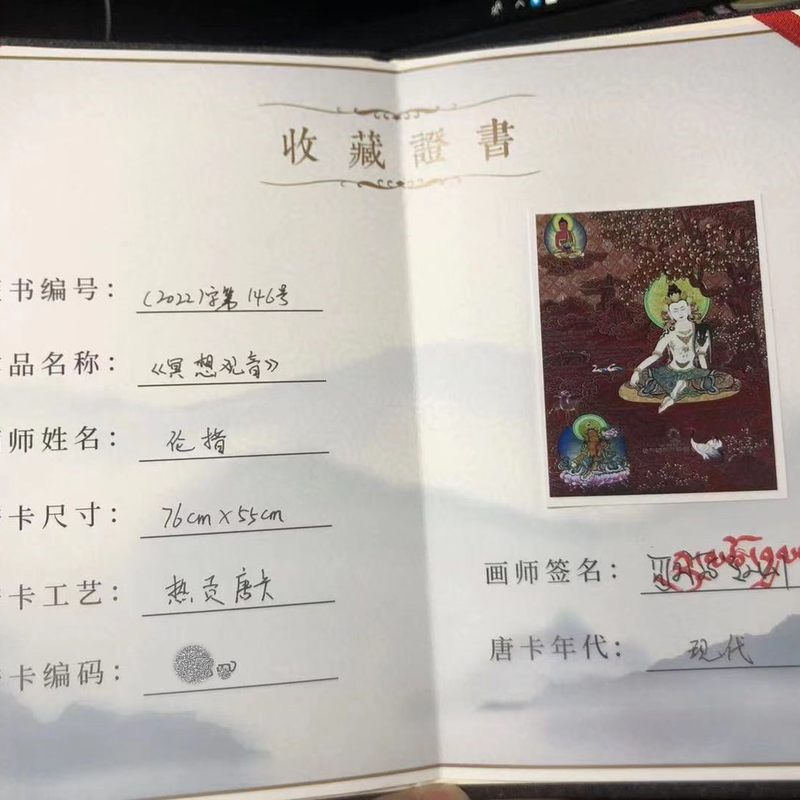 收藏證書
书编号：(2022)字第146号
品名称：《冥想观音》
师姓名：伦措
卡尺寸：76cm×55cm
卡工艺：热贡唐卡
卡编码：
画师签名：
唐卡年代：现代